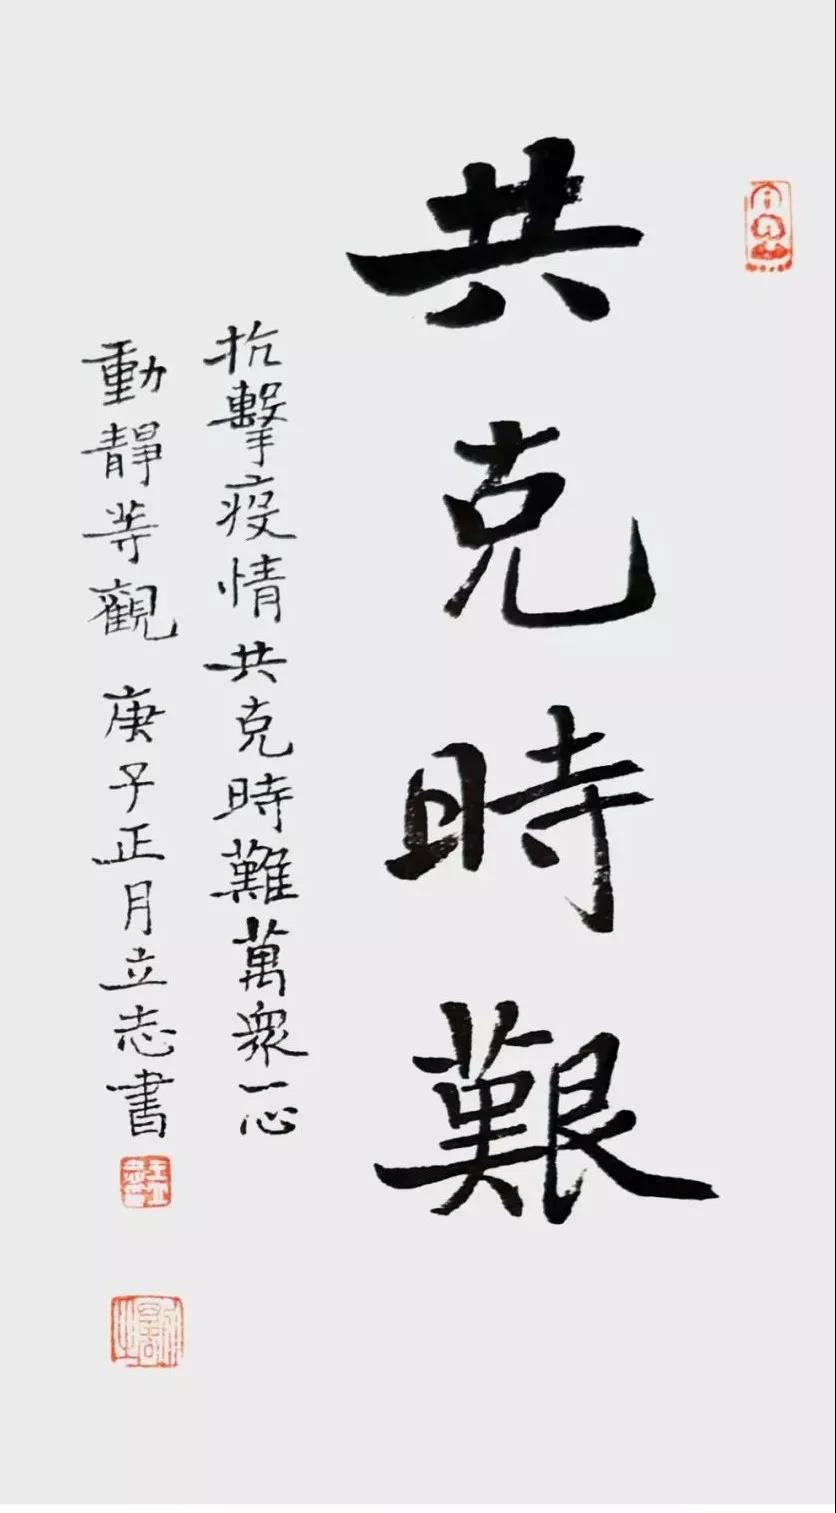 共克時艱
抗擊疫情共克時難萬衆一心
動靜等觀 庚子正月立志書